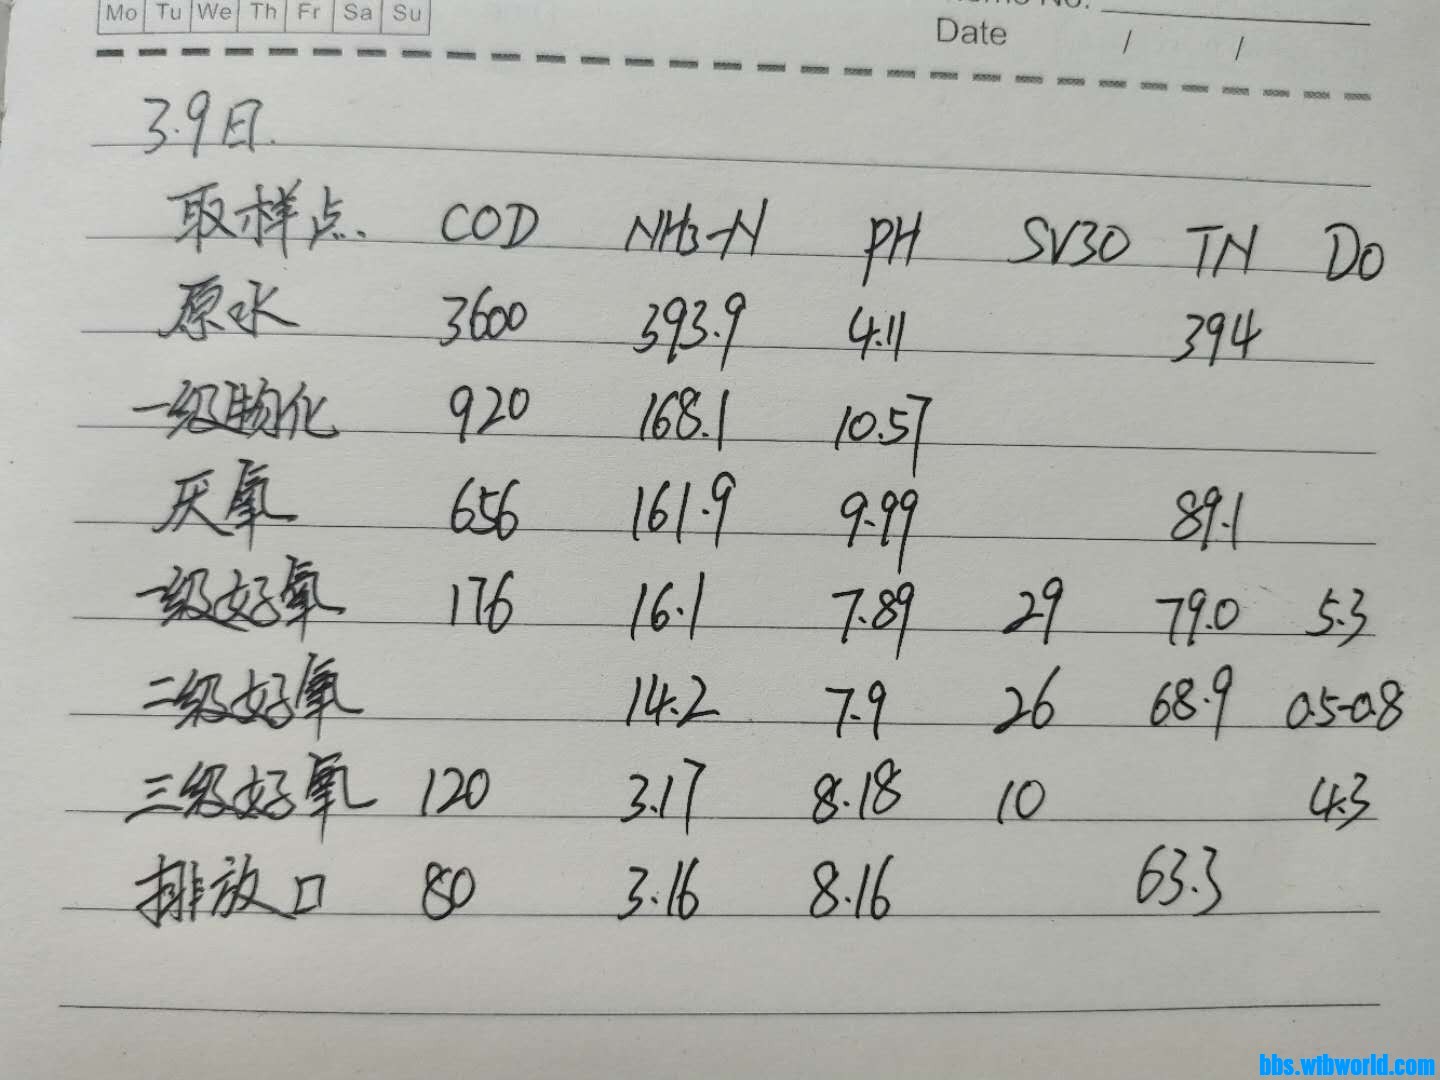 Mo Tu We Th Fr Sa Su
Date / /
3.9日.
取样点. COD NH3-N PH SV30 TN Do
原水 3600 393.9 4.11 394
一级物化 920 168.1 10.57
厌氧 656 161.9 9.99 89.1
一级好氧 176 16.1 7.89 29 79.0 5.3
二级好氧 14.2 7.9 26 68.9 0.5-0.8
三级好氧 120 3.17 8.18 10 4.3
排放口 80 3.16 8.16 63.3
bbs.wtbworld.com